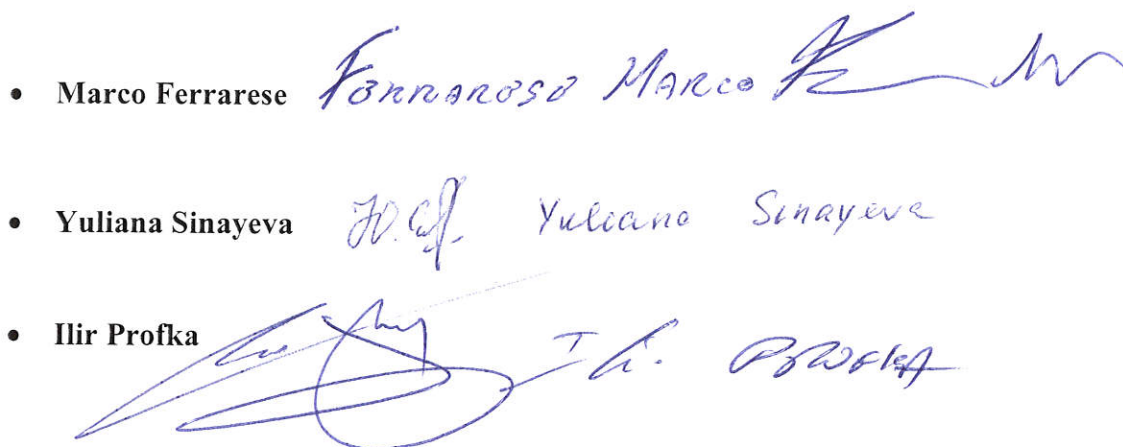 • Marco Ferrarese Ferrarese Marco
• Yuliana Sinayeva Yuliana Sinayeva
• Ilir Profka Ilir PROFKA